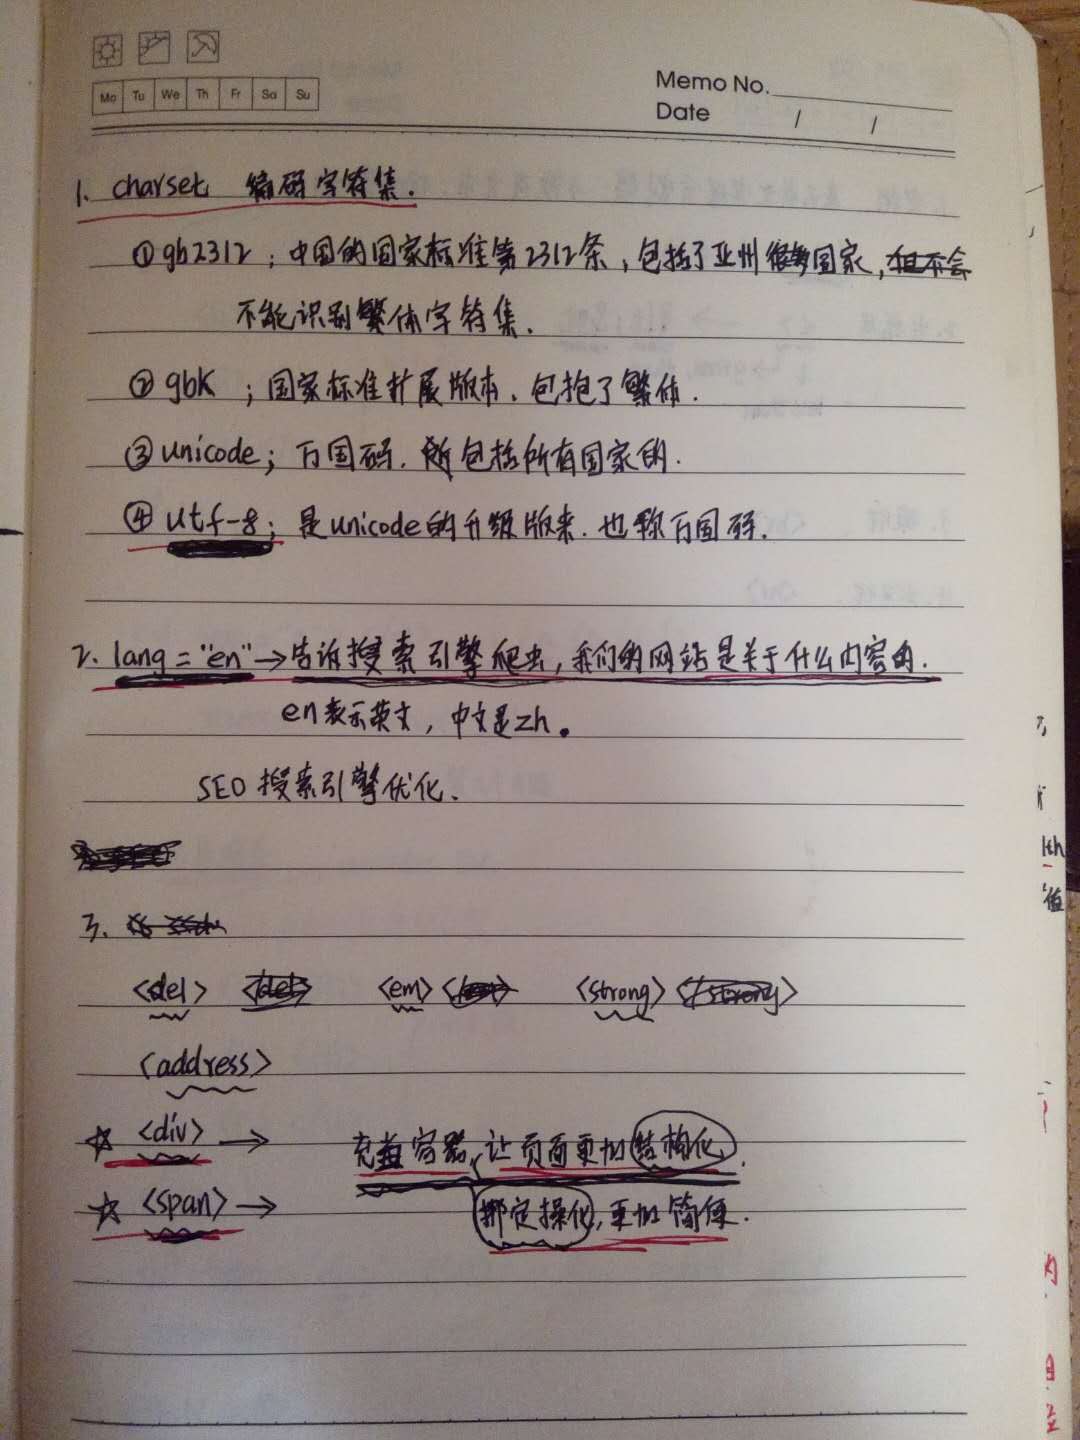 Mo Tu We Th Fr Sa Su
Memo No.
Date / /
1. charset 编码字符集.
①gb2312; 中国的国家标准第2312条,包括了亚州很多国家,但不会
不能识别繁体字符集.
②gbk ; 国家标准扩展版本. 包抱了繁体.
③unicode; 万国码. 包括所有国家的.
④utf-8; 是unicode的升级版来. 也称万国码.
2. lang="en"→告诉搜索引擎爬虫,我们的网站是关于什么内容的.
en表示英文, 中文是zh。
SEO 搜索引擎优化.
3.
<del> <em> <strong> </strong>
<address>
☆ <div> → 充当容器,让页面更加结构化.
☆ <span> → 绑定操化,更加简便.
lth
值
内